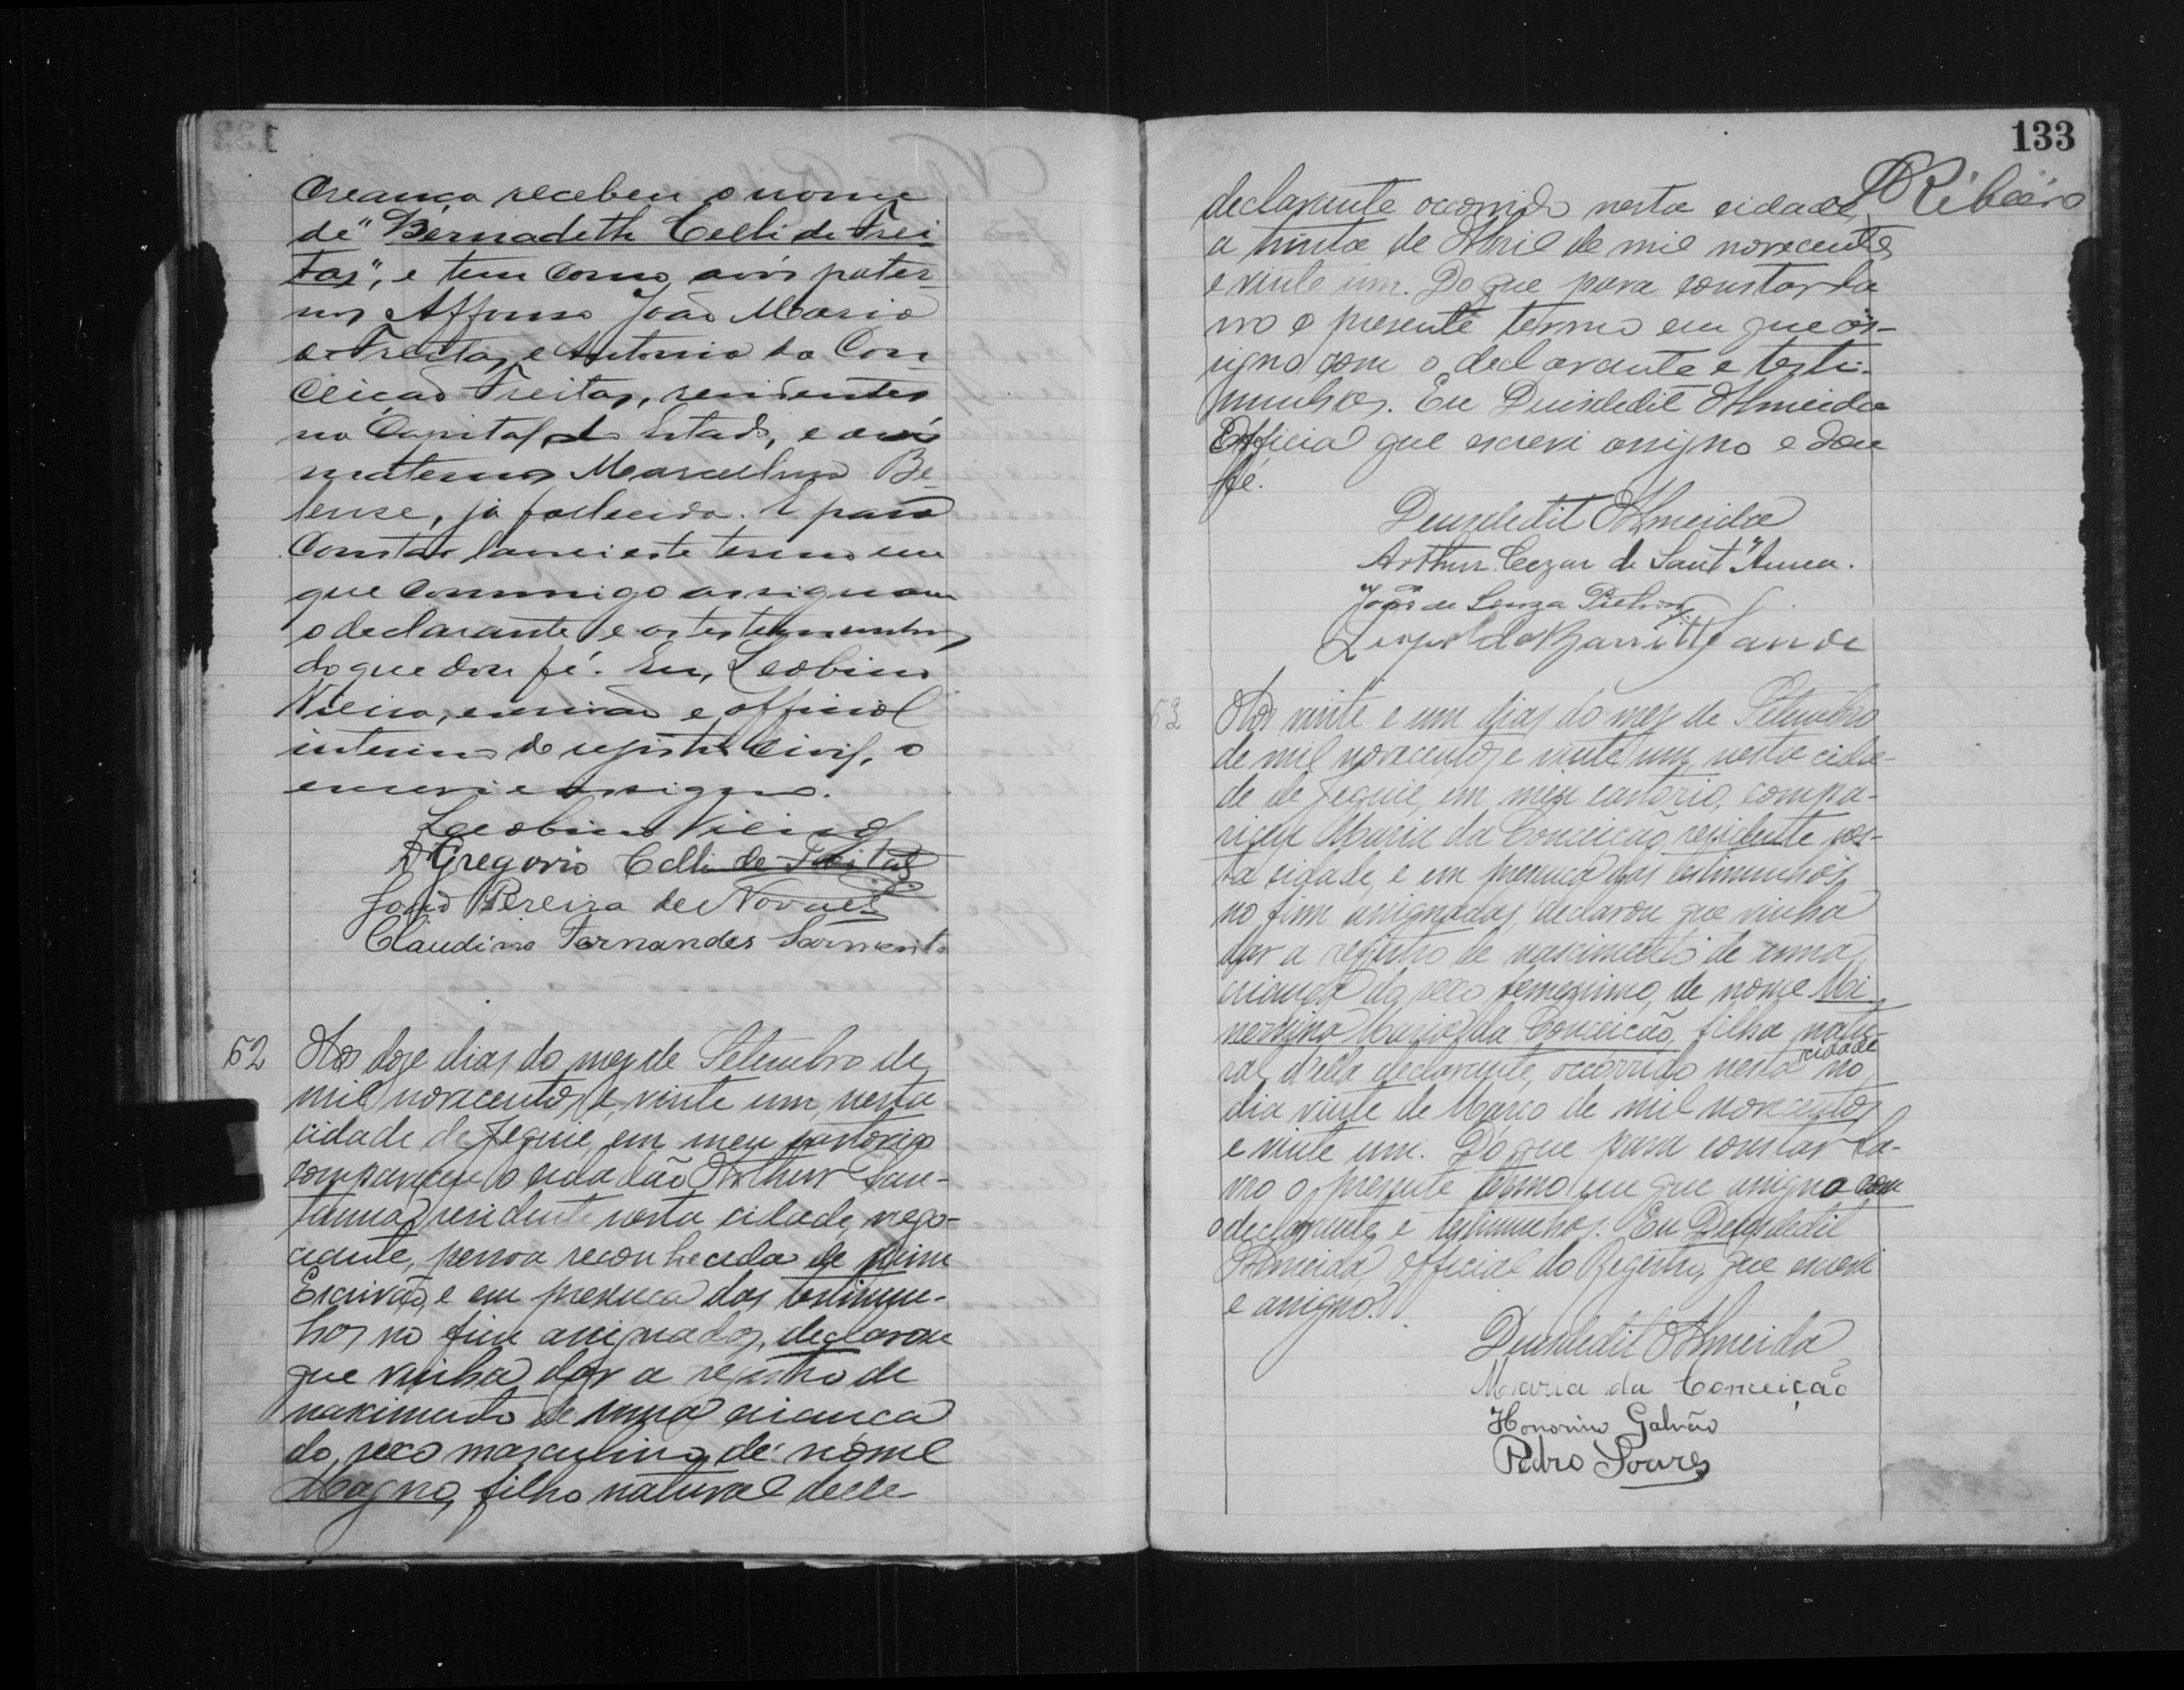 Creança recebeu o nome
de "Bernadeth Celli de Frei-
tas", e tem como avós pater-
nos Affonso João Maria
de Freitas e Antonia da Con-
ceição Freitas, residentes
na Capital do Estado, e avó
materna Marcelina Be-
lense, já fallecida. E para
constar lavrei este termo em
que commigo assignam
o declarante e as testemunhas
do que dou fé. Eu, Leobino
Vieira, escrivão e official
interino do registro Civil, o
escrevi e assigno.
Leobino Vieira
Gregorio Celli de Freitas
João Pereira de Novaes
Claudino Fernandes Sarmento
52
Aos doze dias do mez de Setembro de
mil novecentos e vinte um, nesta
cidade de Jequié, em meu cartorio
compareceu o cidadão Arthur San-
tanna, residente nesta cidade, nego-
ciante, pessoa reconhecida de mim
Escrivão, e em presença das testimu-
nhas no fim assignadas, declarou
que vinha dar a registro de
nascimento de uma criança
do sexo masculino, de nome
Magno, filho natural delle
133
Ribeiro
declarante occorrido nesta cidade,
a trinta de Abril de mil novecentos
e vinte um. Do que para constar la-
vro o presente termo em que as-
signo com o declarante e testi-
munhas. Eu Deusdedit Almeida
Official que escrevi assigno e dou
fé.
Deusdedit Almeida
Arthur Cezar de Sant'Anna.
João de Souza
Leopoldo
53
Aos vinte e um dias do mez de Setembro
de mil novecentos e vinte um, nesta cida-
de de Jequié, em meu cartorio, compa-
receu Maria da Conceição, residente nes-
ta cidade, e em presença das testimunhas
no fim assignadas, declarou que vinha
dar a registro de nascimento de uma
criança do sexo femenino, de nome Mi-
nervina Maria da Conceição, filha natu-
ral d'ella declarante, occorrido nesta cidade no
dia vinte de Março de mil novecentos
e vinte um. Do que para constar la-
vro o presente termo em que assigno com
o declarante e testimunhas. Eu Deusdedit
Almeida, official do Registro, que escrevi
e assigno.
Deusdedit Almeida
Maria da Conceição
Honorino Galvão
Pedro Soares